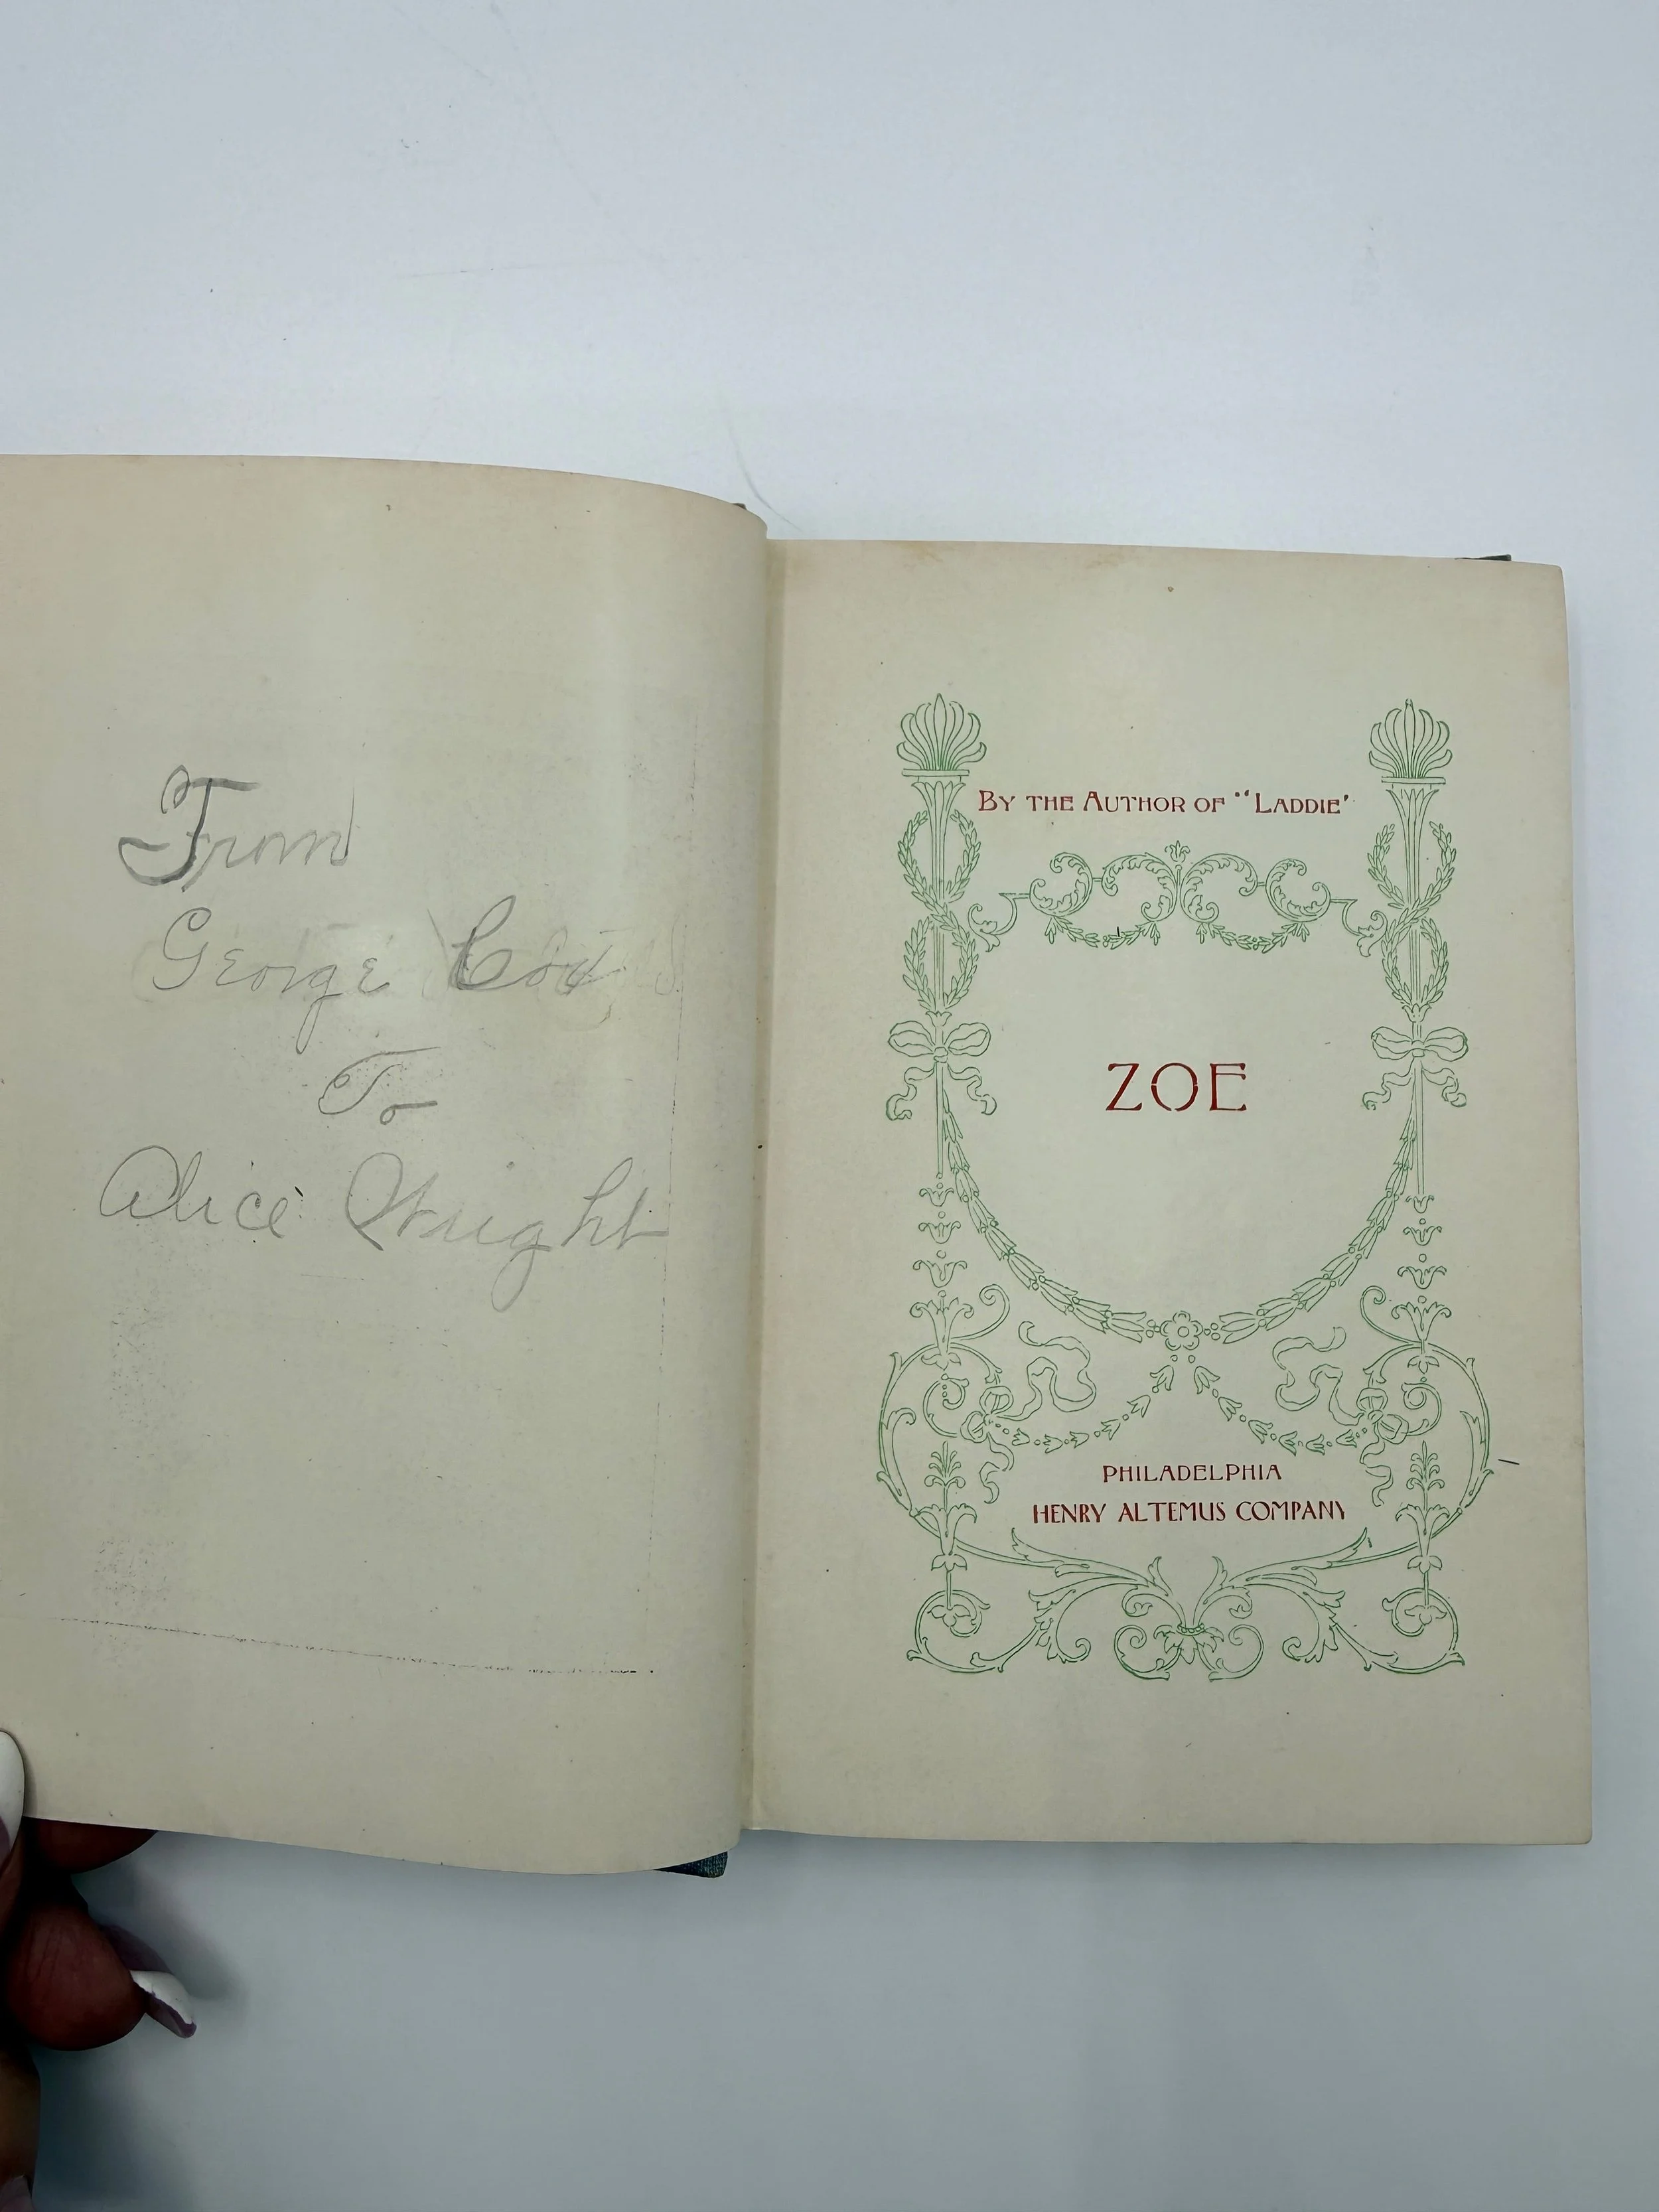 From
George
To
Alice Wright
BY THE AUTHOR OF "LADDIE'
ZOE
PHILADELPHIA
HENRY ALTEMUS COMPANY